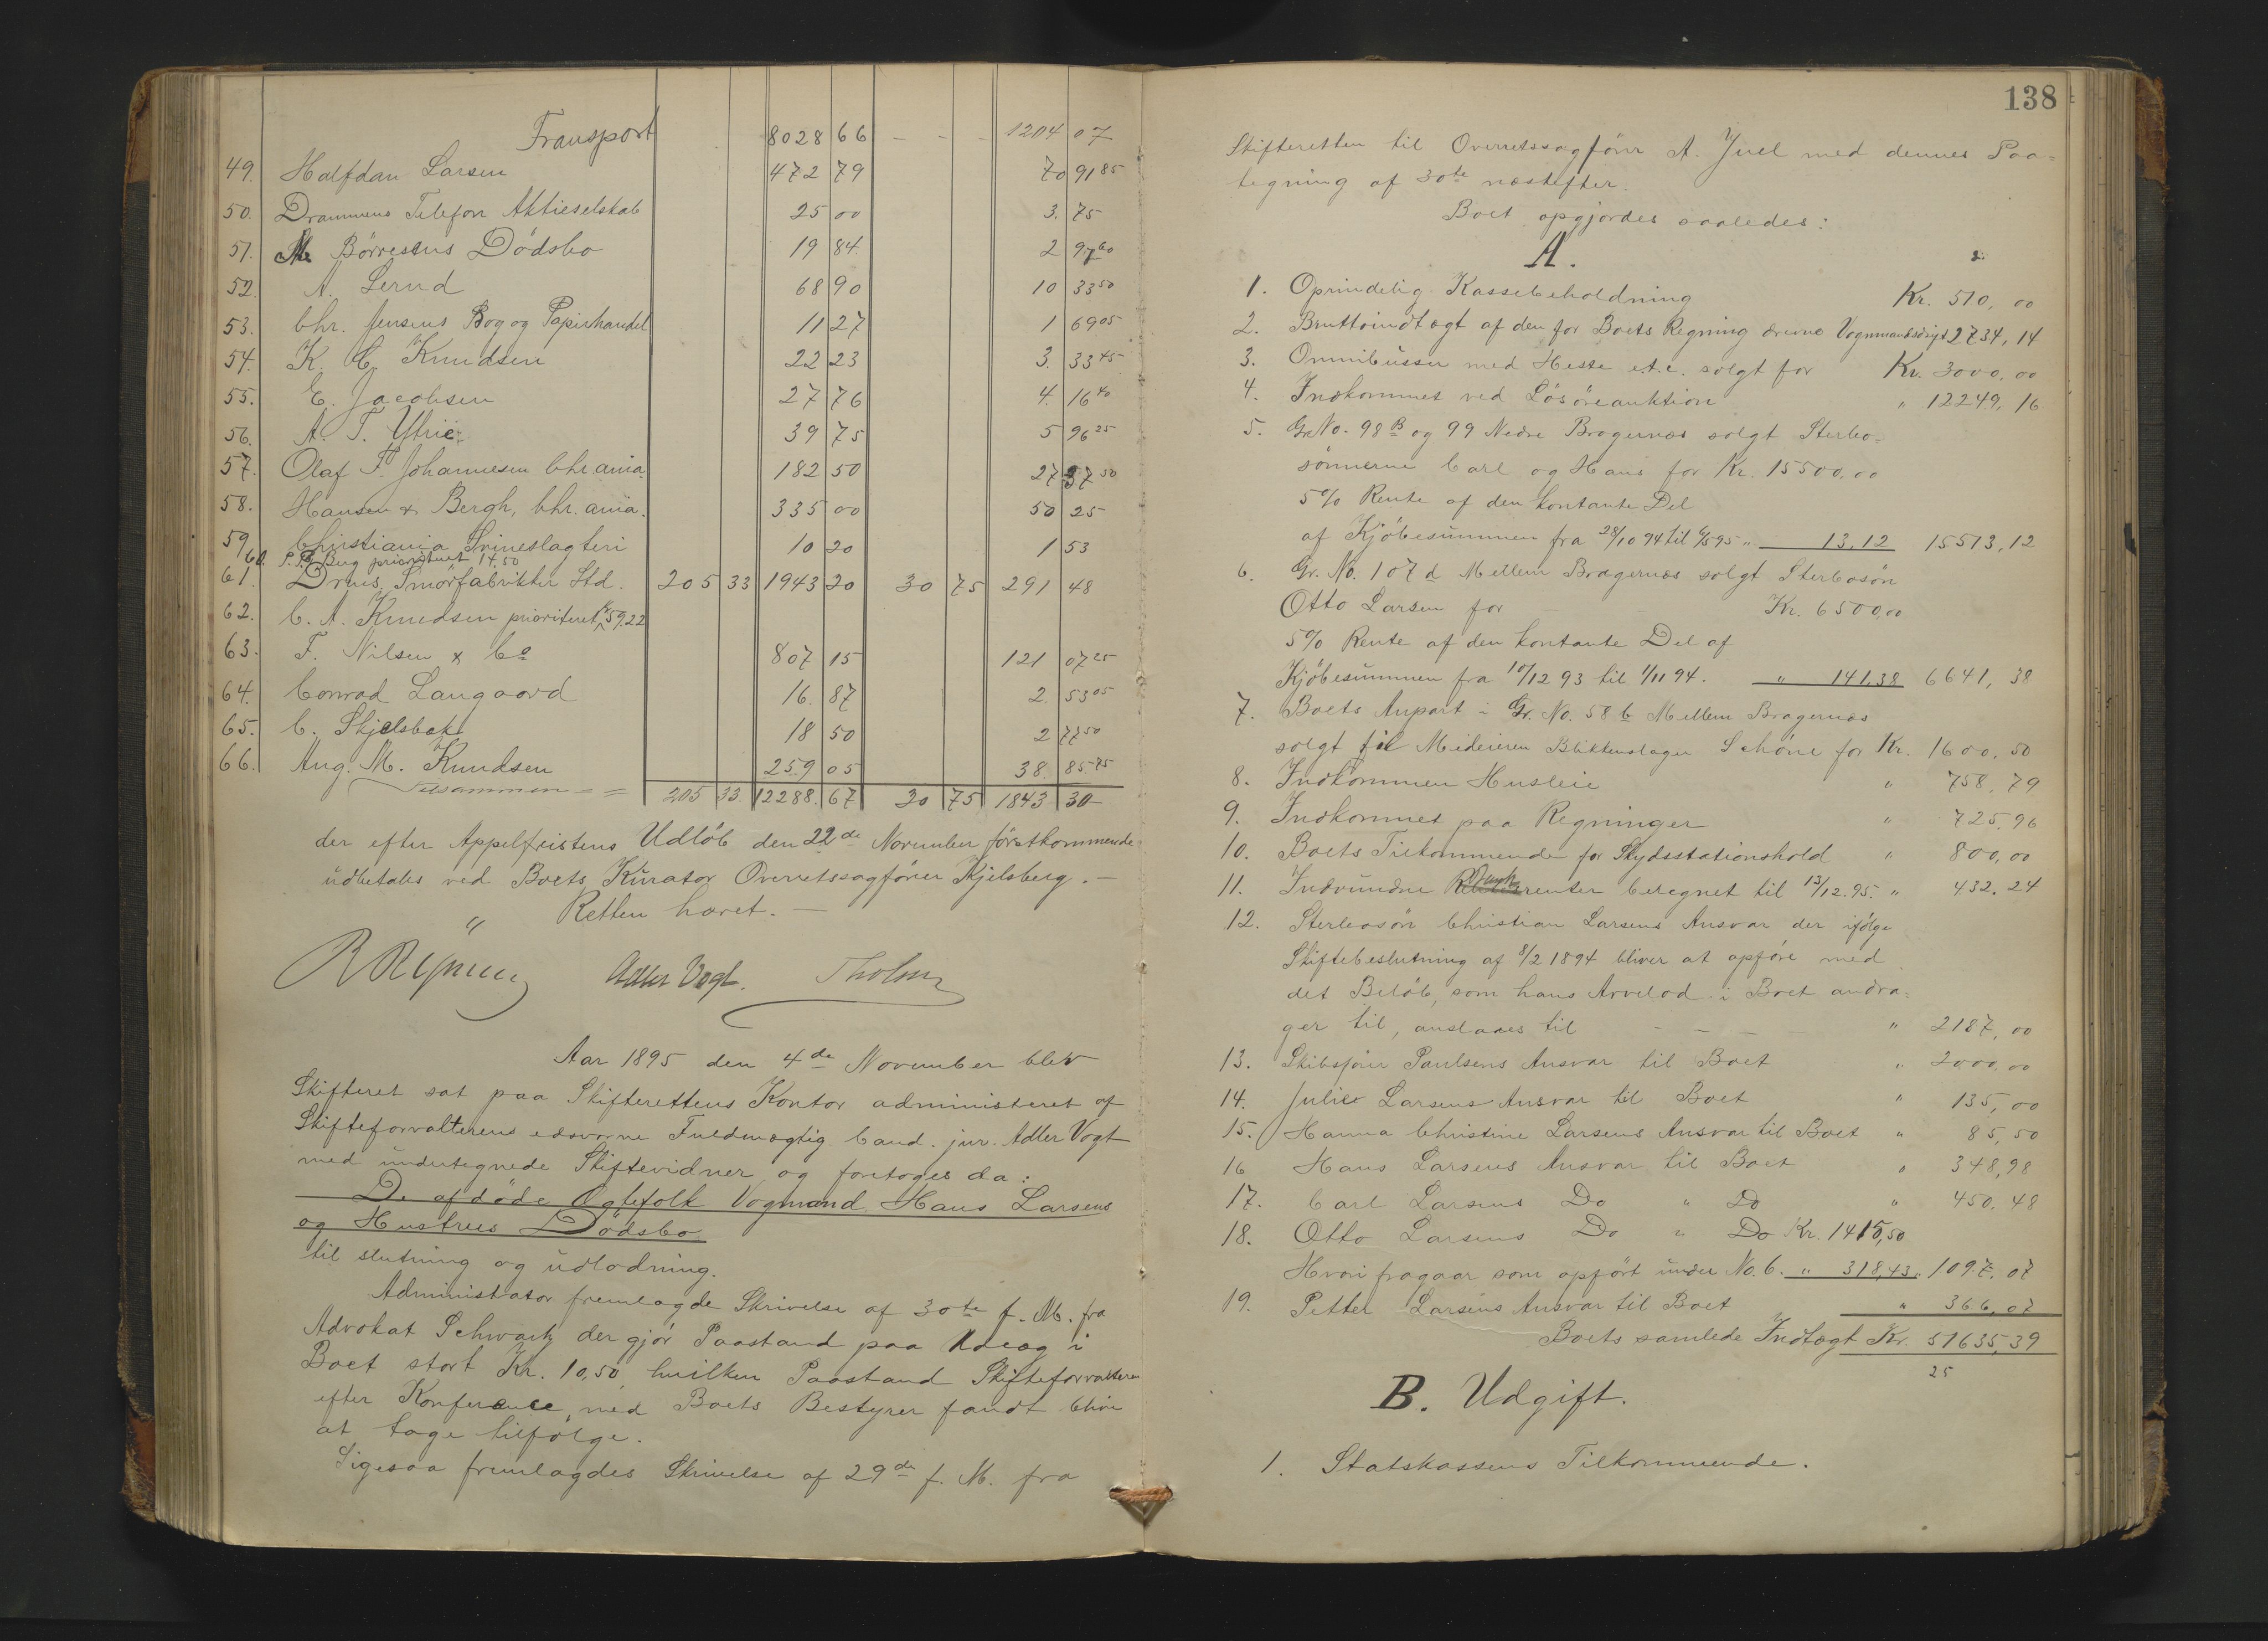 Transport 8028 66 - - - 1204 07
49. Halfdan Larsen 472 79 70 91 85
50. Drammens Telefon Aktieselskab 25 00 3. 75
51. Børresens Dödsbo 19 84. 2 97 60
52. A. Lerud 68 90 10 33 50
53. Chr. Jensens Bog og Papirhandel 11 27 1 69 05
54. K. C. Knudsen 22 23 3. 33 45
55. E. Jacobsen 27 76 4. 16 40
56. A. T. Ytrie 39 75 5 96 25
57. Olaf T. Johannesen Chr.ania. 182 50 27 37 50
58. Hansen & Bergh, Chr.ania. 335 00 50 25
59. Christiania Svineslagteri 10 20 1 53
60. Berg prioriteret 14,50
61. Drms Smörfabrikker Ltd. 205 33 1943 20 30 75 291 48
62. C. A. Knudsen prioriteret 59,22
63. F. Nilsen & Co 807 15 121 07 25
64. Conrad Langaard 16. 87 2. 53 05
65. C. Skjelsbek 18 50 2 77 50
66. Aug. M. Knudsen 259 05 38. 85 75
Tilsammen = = 205 33. 12288. 67 30 75 1843 30
der efter Appelfristens Udlöb den 22de November förstkommende
udbetales ved Boets Kurator Overretssagförer Kjelsberg. -
" Retten hævet. -
Adler Vogt. Tholm
Aar 1895 den 4de November blev
Skifteret sat paa Skifterettens Kontor administeret af
Skifteforvalterens edsvorne Fuldmægtig Cand. jur. Adler Vogt
med undertegnede Skiftevidner og foretoges da:
De afdöde Ægtefolk Vogmand Hans Larsens
og Hustrues Dödsbo
til slutning og udlodning.
Administrator fremlagde Skrivelse af 30te f. M. fra
Advokat Schwartz der gjör Paastand paa Udlæg i
Boet stort Kr. 10,50, hvilken Paastand Skifteforvalteren
efter Konferance med Boets Bestyrer fandt blive
at tage tilfölge.
Ligesaa fremlagdes Skrivelse af 29de f. M. fra
138
Skifteretten til Overretssagförer A. Juel med dennes Paa=
tegning af 30te næstefter.
Boet opgjordes saaledes:
A.
1. Oprindelig Kassebeholdning Kr. 510, 00
2. Bruttoindtægt af den for Boets Regning drevne Vognmandsdrift 2734, 14
3. Omnibussen med Heste e.t.c. solgt for Kr. 3000, 00
4. Indkommet ved Lösöreauktion " 12249, 16
5. Gr No. 98 B og 99 Nedre Bragernæs solgt Sterbo=
sönnerne Carl og Hans for Kr. 15500,00
5% Rente af den kontante Del
af Kjöbesummen fra 28/10 94 til 6/5 95 " 13,12 15513,12
6. Gr. No. 107 d Mellem Bragernæs solgt Sterbosön
Otto Larsen for - - Kr. 6500,00
5% Rente af den kontante Del af
Kjöbesummen fra 10/12 93 til 1/11 94. " 141,38 6641, 38
7. Boets Anpart i Gr. No. 58 b Mellem Bragernæs
solgt til Medeieren Blikkenslager Schöne for Kr. 1600, 50
8. Indkommen Husleie " 758, 79
9. Indkommet paa Regninger " 725,96
10. Boets Tilkommende for Skydsstationshold " 800,00
11. Indvundne Bankrenter beregnet til 13/12.95. " 432.24
12. Sterbosön Christian Larsens Ansvar der ifölge
Skiftebeslutning af 8/2 1894 bliver at opföre med
det Belöb, som hans Arvelod i Boet andra=
ger til, anslaaes til - - - - " 2187, 00
13. Skibsförer Paulsens Ansvar til Boet " 2000,00
14. Julies Larsens Ansvar til Boet " 135,00
15. Hanna Christine Larsens Ansvar til Boet " 85,50
16 Hans Larsens Ansvar til Boet " 348,98
17. Carl Larsens Do " Do " 450.48
18. Otto Larsens Do " Do Kr. 1415,50
Hvori fragaar som opfört under No. 6. " 318,43 " 1097, 07
19. Petter Larsens Ansvar til Boet " 366,07
Boets samlede Indtægt Kr. 51635,39
25
B. Udgift.
1. Statskassens Tilkommende.